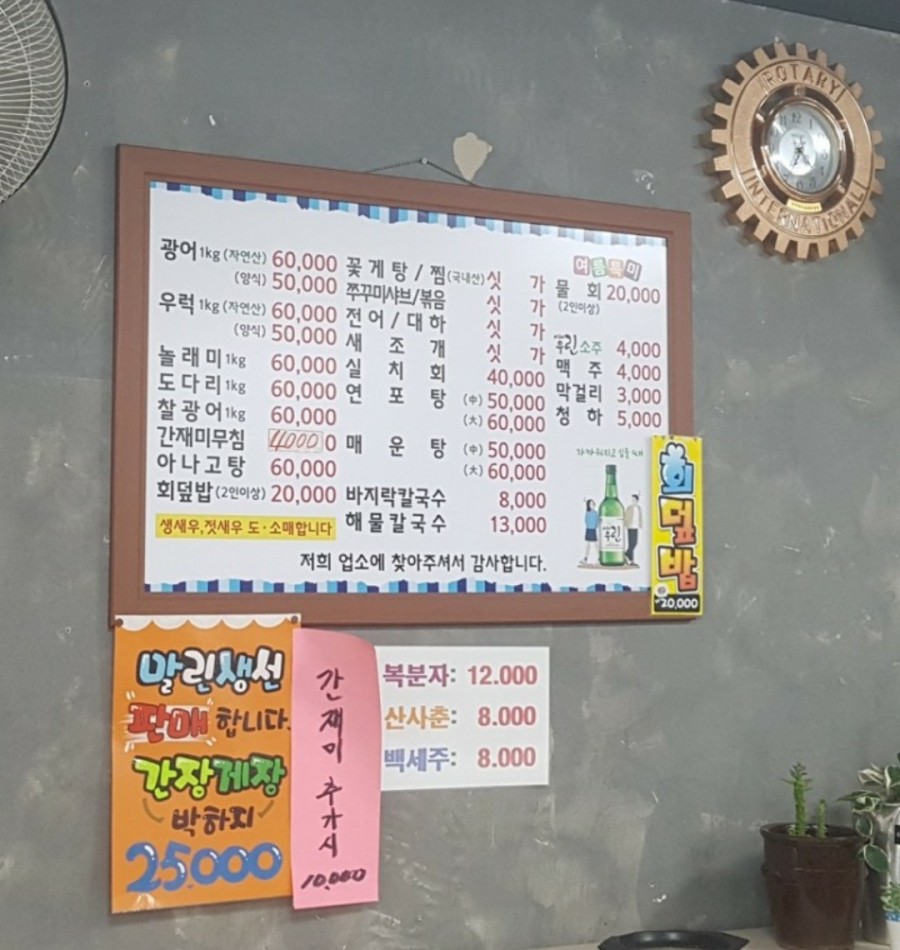 ROTARY
INTERNATIONAL
광어 1kg (자연산) 60,000
(양식) 50,000
우럭 1kg (자연산) 60,000
(양식) 50,000
놀래미 1kg 60,000
도다리 1kg 60,000
찰광어 1kg 60,000
간재미무침 4,0000
아나고탕 60,000
회덮밥 (2인이상) 20,000
생새우,젓새우 도·소매합니다
꽃게탕/찜 (국내산) 싯가
쭈꾸미샤브/볶음 싯가
전어/대하 싯가
새조개 싯가
실치회 40,000
연포탕 (中) 50,000
(大) 60,000
매운탕 (中) 50,000
(大) 60,000
바지락칼국수 8,000
해물칼국수 13,000
여름특미
물회 20,000
(2인이상)
린소주 4,000
맥주 4,000
막걸리 3,000
청하 5,000
저희 업소에 찾아주셔서 감사합니다.
회덮밥
20,000
말린생선
판매합니다.
간장게장
박하지
25,000
간재미 추가시
10,000
복분자: 12.000
산사춘: 8.000
백세주: 8.000